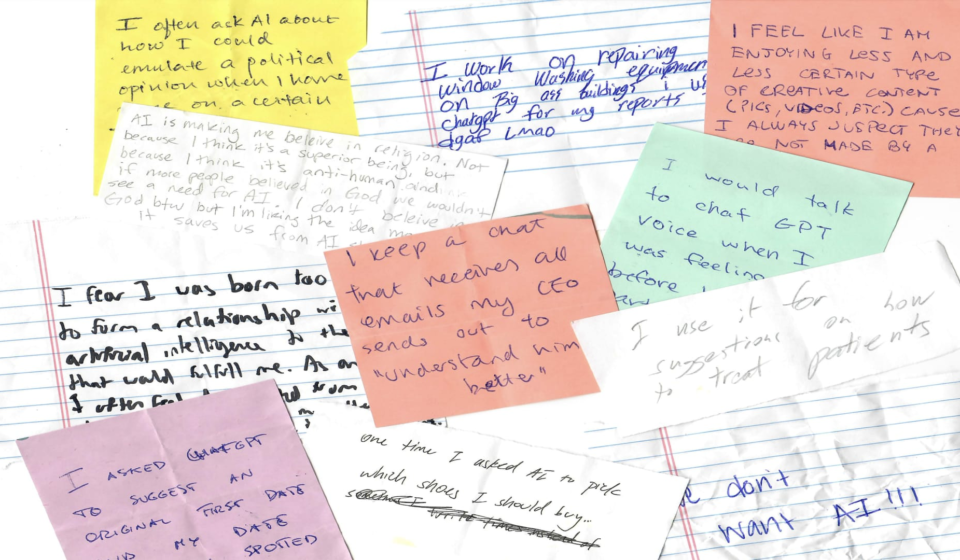 I often ask AI about
how I could
emulate a political
opinion when I have
on a certain
I work on repairing
window washing equipment
on Big ass buildings I us
Chatgpt for my reports
dgaf Lmao
I FEEL LIKE I AM
ENJOYING LESS AND
LESS CERTAIN TYPE
OF CREATIVE CONTENT
(PICS, VIDEOS, ETC.) CAUSE
I ALWAYS SUSPECT THEY
NOT MADE BY A
AI is making me beleive in religion. Not
because I think it's a superior being, but
because I think it's anti-human and
if more people believed in God we wouldn't
see a need for AI. I don't beleive in
God btw but I'm liking the idea
it saves us from AI
I would talk
to chat GPT
voice when I
was feeling
before
I fear I was born too
to form a relationship wi
artificial intelligence to the
that would fulfill me. As an
I often feel from
I keep a chat
that receives all
emails my CEO
sends out to
"understand him
better"
I use it for
suggestions on how
to treat patients
I ASKED CHATGPT
TO SUGGEST AN
ORIGINAL FIRST DATE
MY DATE
SPOTTED
one time I asked AI to pick
which shoes I should buy...
e don't
want AI!!!